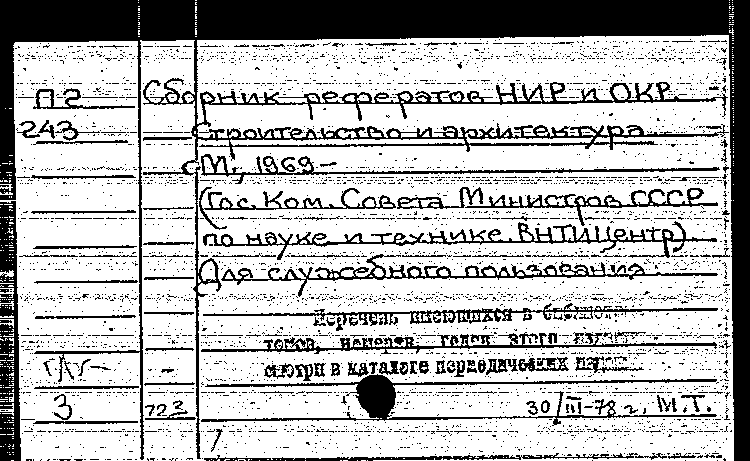 П2 Сборник рефератов НИР и ОКР.
243 Строительство и архитектура
М., 1969 –
(Гос. Ком. Совета Министров СССР
по науке и технике. ВНТИЦентр).
Для служебного пользования.
Перечень имеющихся в
томов, номеров, годов этого
смотри в каталоге периодических
3 723 30/III-78 г. М.Т.